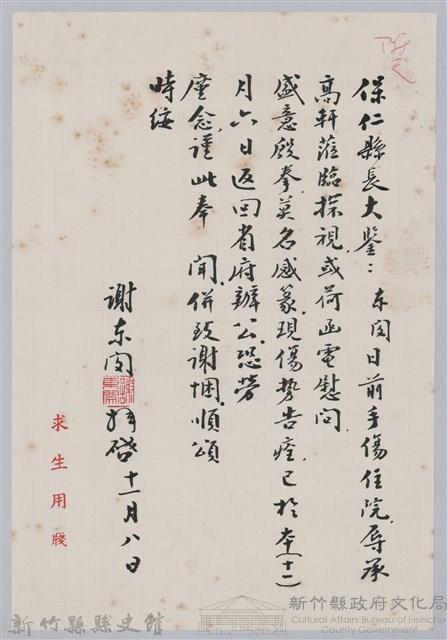 保仁縣長大鑒：東閔日前手傷住院，辱承
高軒蒞臨探視，或荷函電慰問，
盛意殷拳，莫名感篆，現傷勢告痊，已於本(十一)
月六日返回省府辦公，恐勞
廑念，謹此奉聞，併致謝悃，順頌
時綏
謝東閔 拜啓 十一月八日
求生用牋
新竹縣縣史館
新竹縣政府文化局
Cultural Affairs Bureau of Hsinchu
County Government